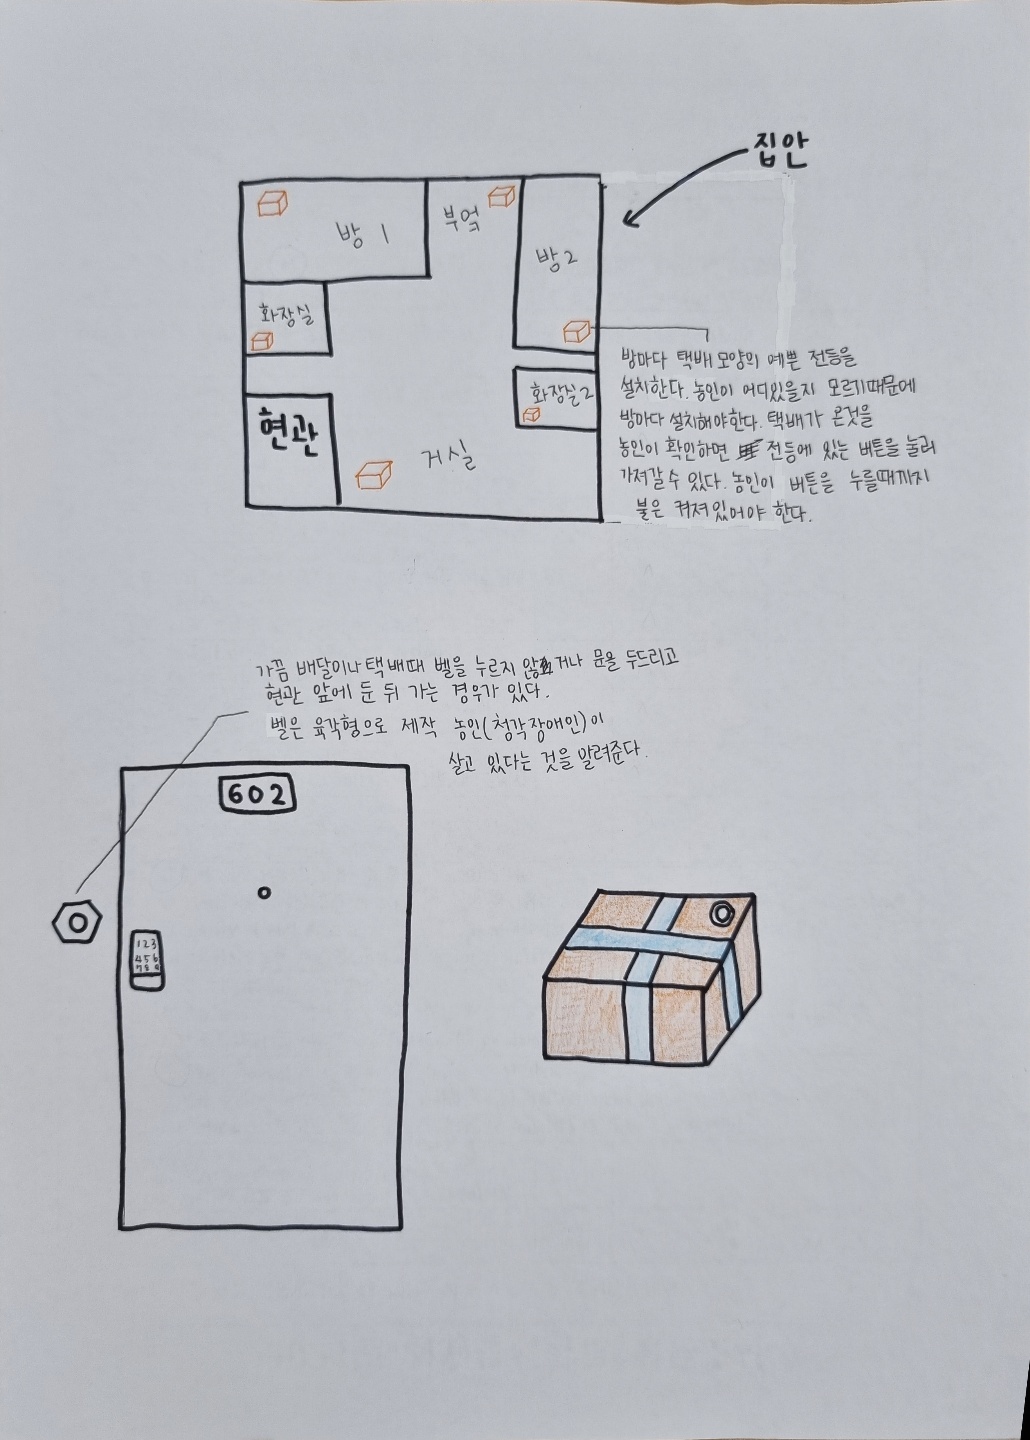 집안
방 1
부엌
방2
화장실
화장실2
현관
거실
방마다 택배 모양의 예쁜 전등을
설치한다. 농인이 어디있을지 모르기때문에
방마다 설치해야한다. 택배가 온것을
농인이 확인하면 전등에 있는 버튼을 눌러
가져갈 수 있다. 농인이 버튼을 누를때까지
불은 켜져있어야 한다.
가끔 배달이나 택배때 벨을 누르지 않거나 문을 두드리고
현관 앞에 둔 뒤 가는 경우가 있다.
벨은 육각형으로 제작 농인(청각장애인)이
살고 있다는 것을 알려준다.
602
123
456
789